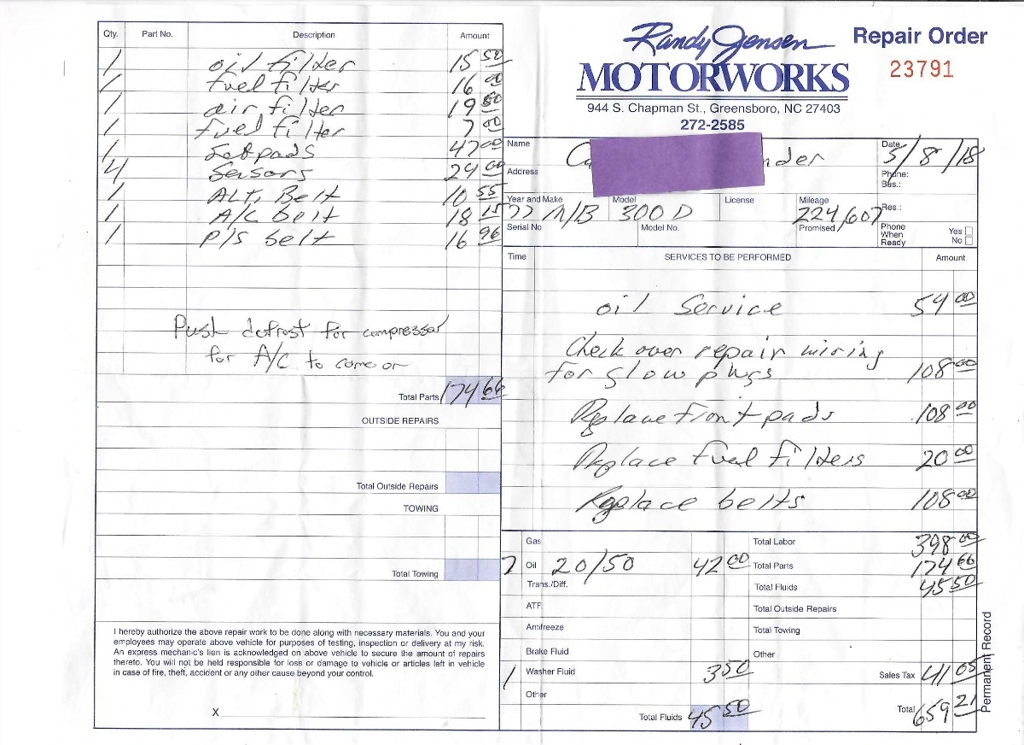 Randy Jensen
MOTORWORKS
944 S. Chapman St., Greensboro, NC 27403
272-2585
Repair Order
23791
Qty. Part No. Description Amount
1 oil filter 15 50
1 fuel filter 16 00
1 air filter 19 50
1 fuel filter 7 00
1 Set pads 47 00
4 Sensors 24 00
1 ALT. Belt 10 55
1 A/C belt 18 15
1 P/S belt 16 96
Push defrost for compressor
for A/C to come on
Total Parts 174 66
OUTSIDE REPAIRS
Total Outside Repairs
TOWING
Total Towing
I hereby authorize the above repair work to be done along with necessary materials. You and your
employees may operate above vehicle for purposes of testing, inspection or delivery at my risk.
An express mechanic's lien is acknowledged on above vehicle to secure the amount of repairs
thereto. You will not be held responsible for loss or damage to vehicle or articles left in vehicle
in case of fire, theft, accident or any other cause beyond your control.
X
Name Ca nder
Date 5/8/18
Address
Phone:
Bus.:
Year and Make 77 M/B Model 300 D License Mileage 224/607 Res.:
Serial No. Model No. Promised
Phone When Ready Yes No
Time SERVICES TO BE PERFORMED Amount
oil Service 54 00
Check over repair wiring
for glow plugs 108 00
Replace front pads 108 00
Replace fuel filters 20 00
Replace belts 108 00
Gas Total Labor 398 00
7 Oil 20/50 42 00 Total Parts 174 66
Trans./Diff. Total Fluids 45 50
ATF Total Outside Repairs
Antifreeze Total Towing
Brake Fluid Other
1 Washer Fluid 3 50 Sales Tax 41 05
Other
Total Fluids 45 50 Total 659 21
Permanent Record